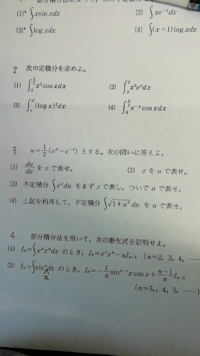 (1)* ∫x sin x dx (2) ∫xe⁻ˣdx
(3)* ∫log x dx (4) ∫(x+1)log x dx
2. 次の定積分を求めよ。
(1) cos x dx (2)
(3) (log x)²dx (4) cos x dx
3. u=1/2(eˣ−e⁻ˣ) とする。次の問いに答えよ。
(1) du/dx を x で表せ。 (2) x を u で表せ。
(3) 不定積分 をまず x で表し、ついで u で表せ。
(4) 上記を利用して、不定積分 ∫√(1+u²) du を u で表せ。
4. 部分積分法を用いて、次の漸化式を証明せよ。
(1) Iₙ=∫eˣxⁿdx のとき、Iₙ=eˣxⁿ−nIₙ₋₁ (n=2, 3, 4, ……
(2) Iₙ=∫sinⁿ dx のとき、Iₙ=−1/n sinⁿ⁻¹x cos x+(n−1)/n Iₙ₋₂
x
(n=3, 4, 5, ……)